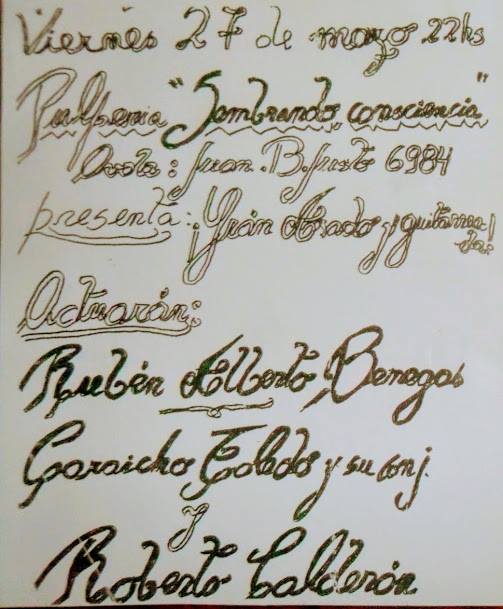 Viernes 27 de marzo 22hs
Pulpería "Sembrando consciencia"
Avda: Juan.B.Justo 6984
presenta: ¡Gran Asado y guitarrea
da!
Actuarán:
Rubén Alberto Benegas
Caraicho Toledo y su conj.
y
Roberto Calderón